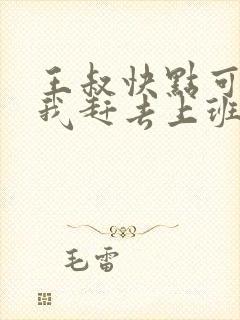 王叔快點可
我赶去上班
毛雷